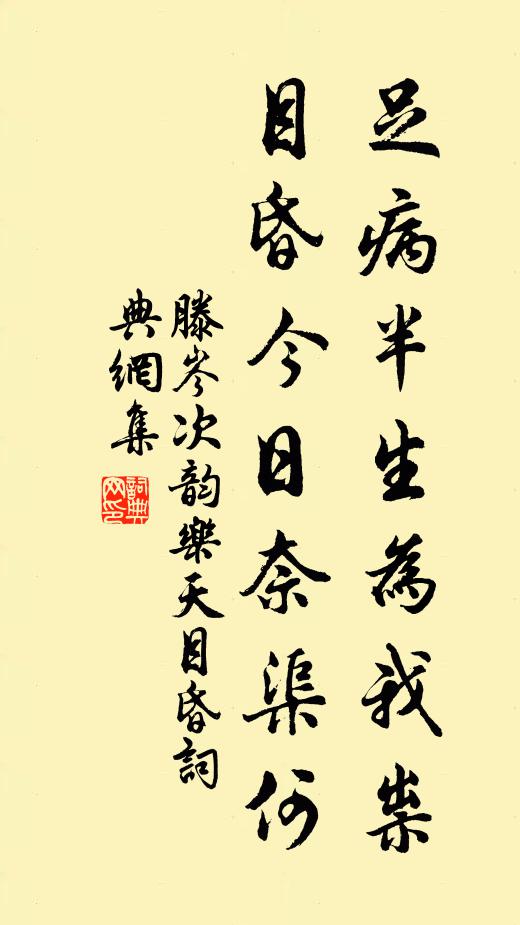 足病半生為我祟
目昏今日奈渠何
滕岑次韵樂天目昏詞
典網集
詞典
网印